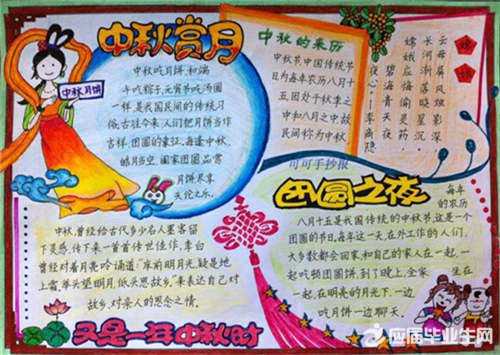 中秋赏月
中秋月饼
中秋吃月饼,和端
午吃粽子、元宵节吃汤圆
一样,是我国民间的传统习
俗。古往今来,人们把月饼当作
吉祥、团圆的象征。每逢中秋,
皓月当空,阖家团圆,品
月饼尽享
天伦之乐。
中秋的来历
中秋节中国传统节
日为每年农历八月十
五,因处于秋季之
中和八月之中故
民间称为中秋
嫦娥
云母屏风烛影深
长河渐落晓星沉
嫦娥应悔偷灵药
碧海青天夜夜心
李商隐
可可手抄报
团圆之夜
每年
的农历
八月十五是我国传统的中秋节,这是一个
团圆的节日,每年这一天,在外工作的人们,
大多数都会回家,和自己的家人在一起,一
起吃顿团圆饼,到了晚上,全家一生在
一起,在明亮的月光下,一边
吃月饼一边聊天。
中秋,曾经给古代多少名人墨客留
下灵感,传下来一首首传世佳作,李白
曾经对着月亮吟诵道:“床前明月光,疑是地
上霜,举头望明月,低头思故乡。”来表达自己对
故乡,对亲人的思念之情。
又是一年中秋时
应届毕业生网